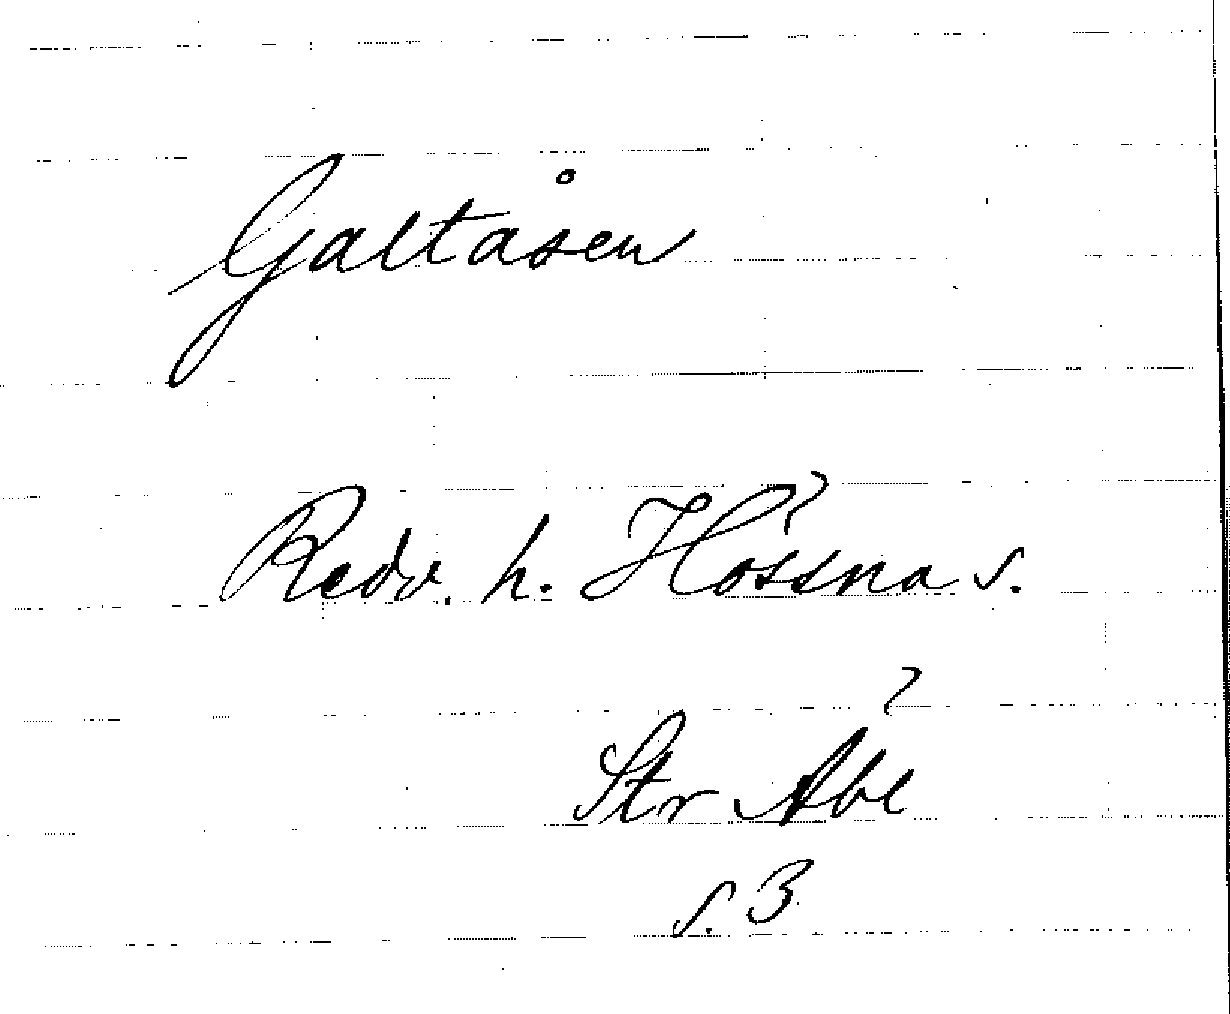 Galtåsen
Redv. h. Hössna s.
Str Abl
s. 3